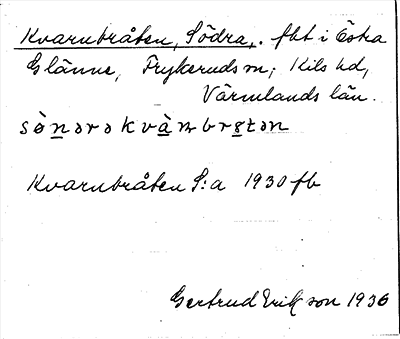 Kvarnbråten, Södra,. fbt i Östra
Glänne, Frykeruds sn; Kils hd,
Värmlands län.
sònərə kvàɳbrɷtən
Kvarnbråten S:a 1930 fb
Gertrud Erikson 1936